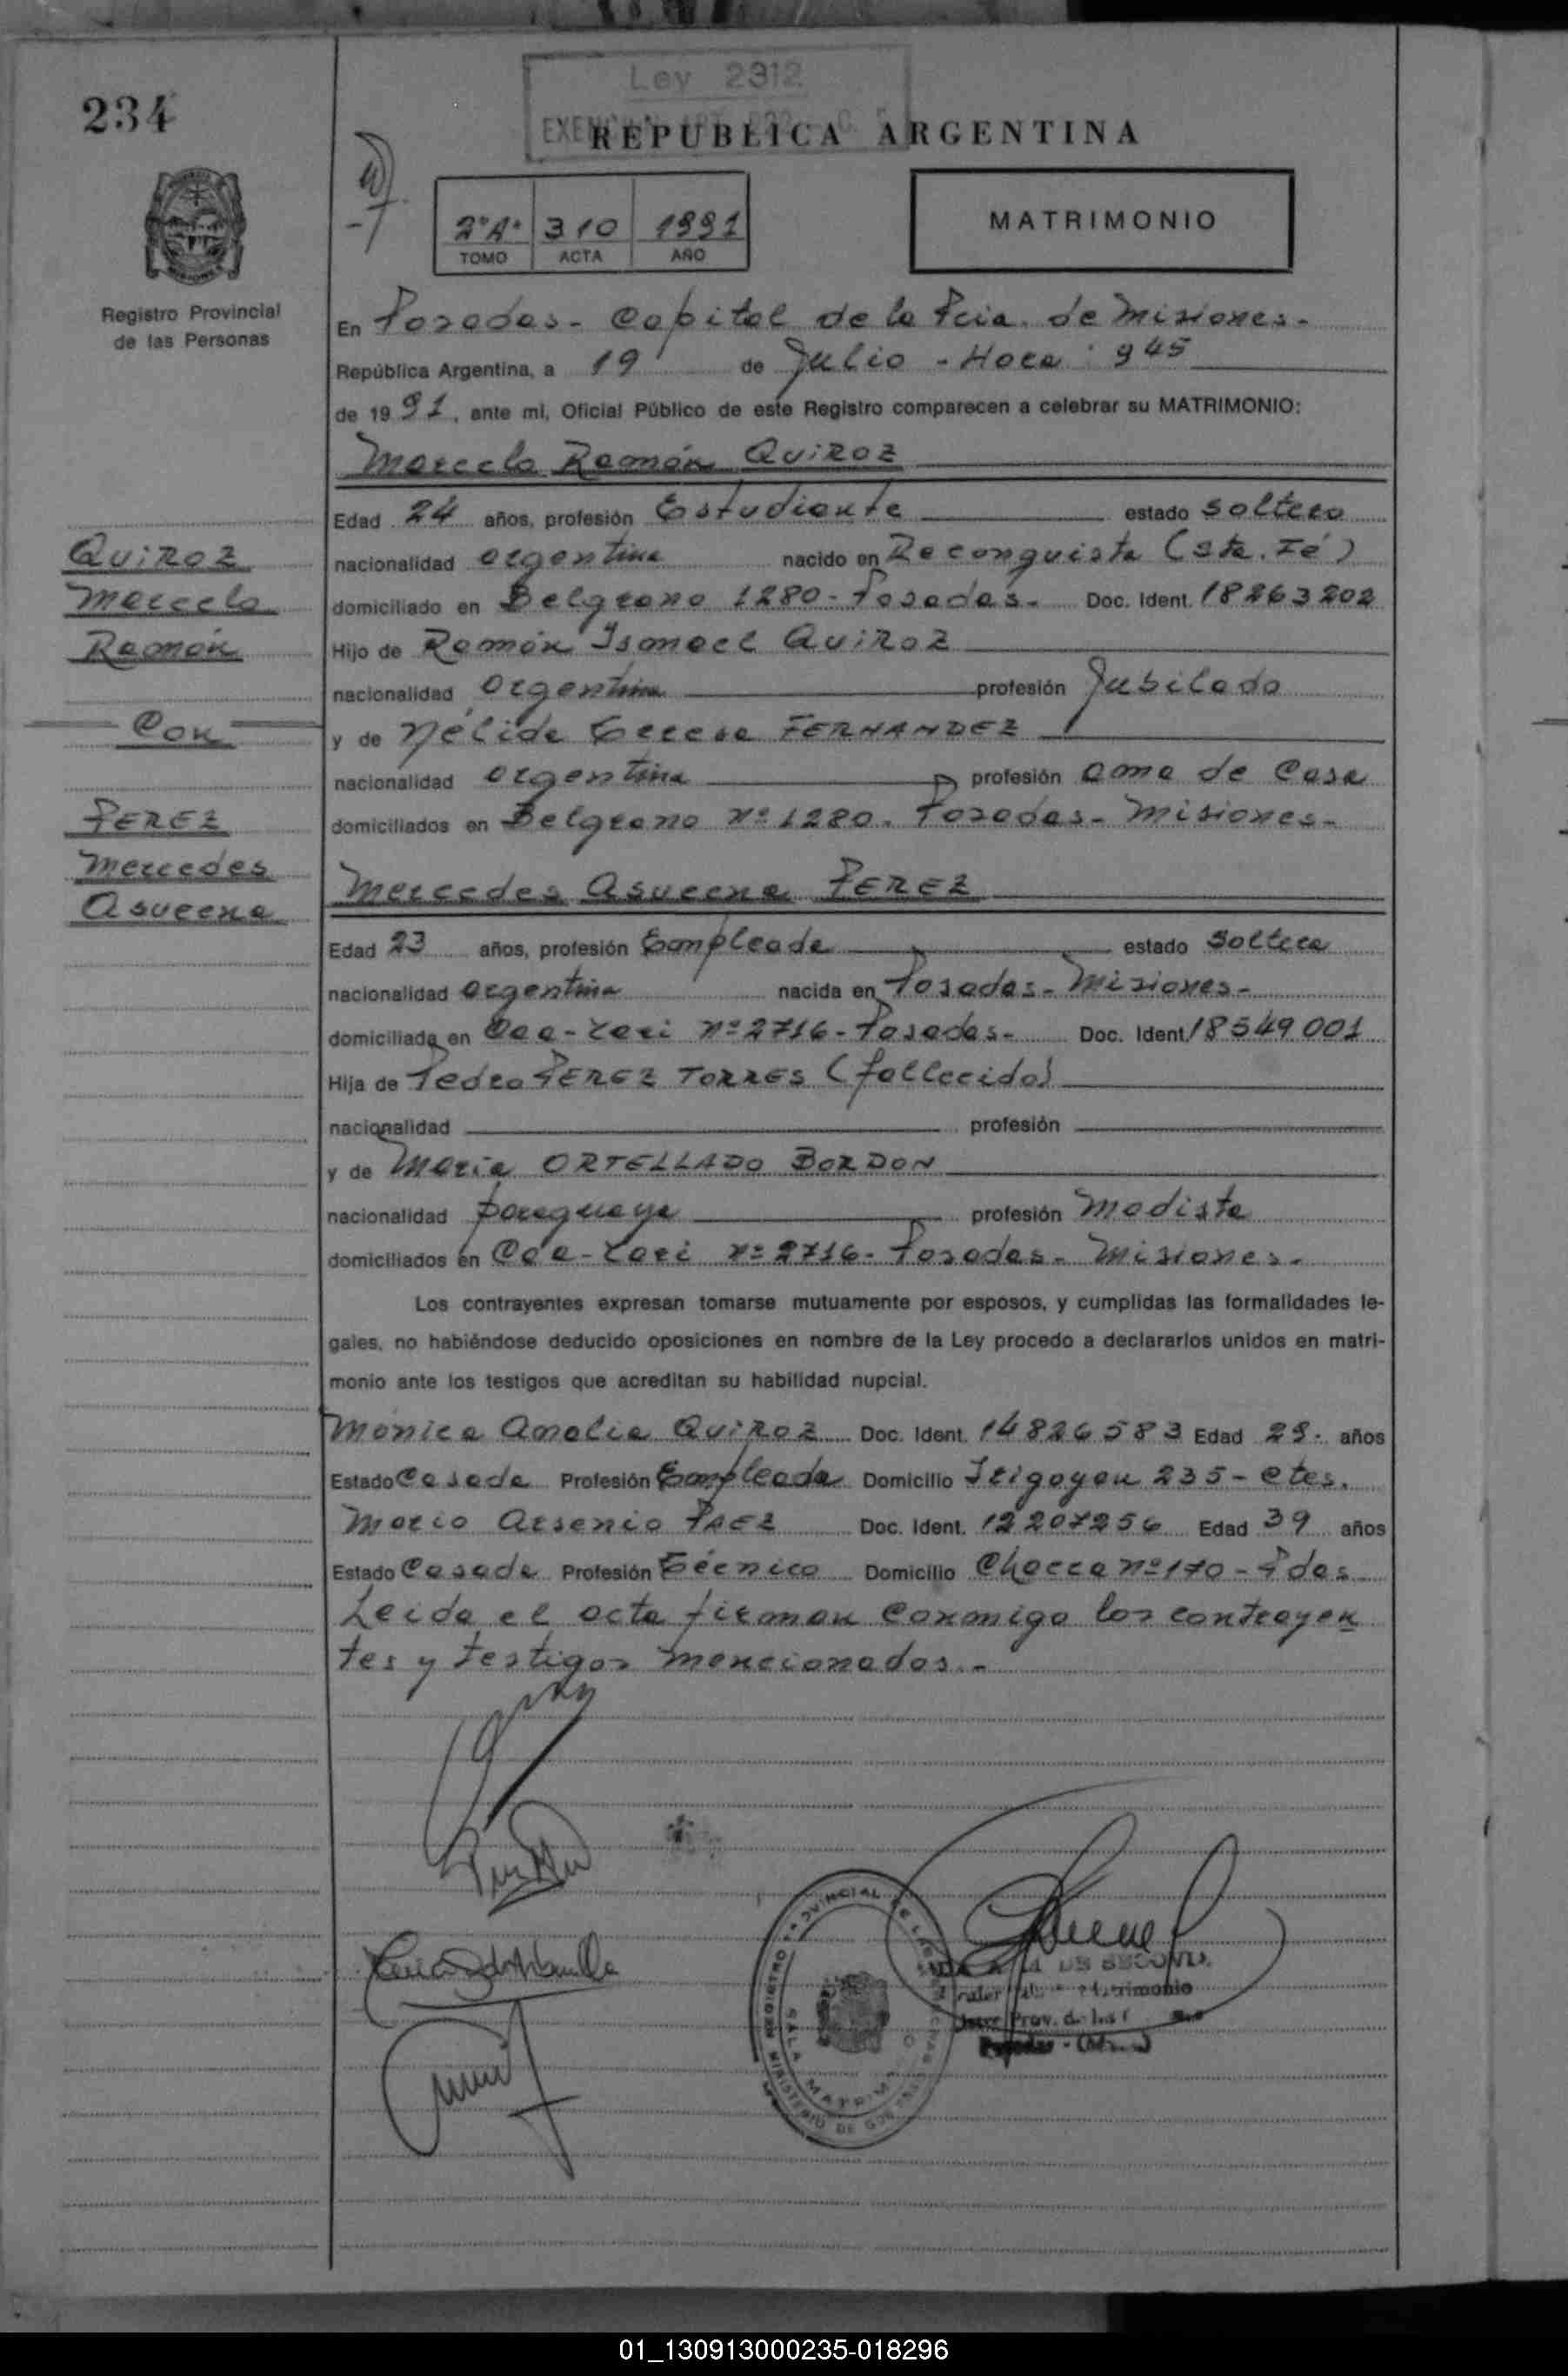 234
Ley 2312
REPUBLICA ARGENTINA
2ºAº 310 1991
TOMO ACTA AÑO
MATRIMONIO
Registro Provincial
de las Personas
En Posadas - Capital de la Pcia. de Misiones -
República Argentina, a 19 de Julio - Hora: 9 45
de 1991, ante mi, Oficial Público de este Registro comparecen a celebrar su MATRIMONIO:
Marcelo Ramón QUIROZ
Edad 24 años, profesión Estudiante estado Soltero
nacionalidad argentina nacido en Reconquista (Sta. Fé)
domiciliado en Belgrano 1280 - Posadas - Doc. Ident. 18263202
Hijo de Ramón Ismael QUIROZ
nacionalidad argentina profesión Jubilado
y de Nélida Teresa FERNANDEZ
nacionalidad argentina profesión ama de Casa
domiciliados en Belgrano Nº 1280. Posadas - Misiones -
QUIROZ
Marcelo
Ramón
Con
PEREZ
Mercedes
Asucena
Mercedes Asucena PEREZ
Edad 23 años, profesión Empleada estado Soltera
nacionalidad argentina nacida en Posadas - Misiones -
domiciliada en Caa-Yari Nº 2716 - Posadas - Doc. Ident. 18549001
Hija de Pedro PEREZ TORRES (fallecido)
nacionalidad profesión
y de María ORTELLADO BORDON
nacionalidad paraguaya profesión Modista
domiciliados en Caa-Yari Nº 2716 - Posadas - Misiones -
Los contrayentes expresan tomarse mutuamente por esposos, y cumplidas las formalidades le-
gales, no habiéndose deducido oposiciones en nombre de la Ley procedo a declararlos unidos en matri-
monio ante los testigos que acreditan su habilidad nupcial.
Mónica Amalia QUIROZ Doc. Ident. 14826583 Edad 29. años
Estado Casada Profesión Empleada Domicilio Irigoyen 235 - Ctes.
Mario Arsenio PAEZ Doc. Ident. 12207256 Edad 39 años
Estado Casado Profesión Técnico Domicilio Chacra Nº 170 - Pdas
Leída el acta firman conmigo los contrayen
tes y testigos mencionados. -
01_130913000235-018296